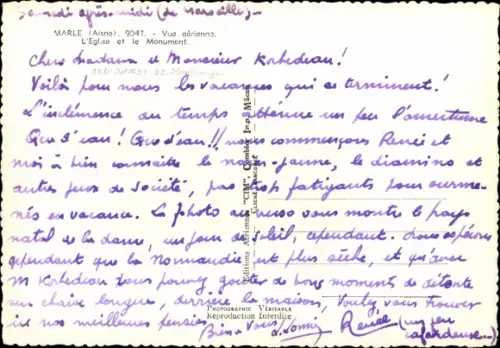 Samedi après-midi (de Marseille) -
MARLE (Aisne). 9047. - Vue aérienne.
L'Eglise et le Monument.
Chers Madame et Monsieur Korbedeau!
Voilà pour nous les vacances qui se terminent!
L'inclémence du temps atténue un peu l'amertume
Que d'eau! Que d'eau!! nous commençons Renée et
moi à bien connaître le nain-jaune, le diamino et
autres jeux de société, pas trop fatigants pour surme-
nés en vacance. La photo au verso vous montre le pays
natal de la dame, un jour de soleil, cependant. Nous espérons
cependant que la Normandie est plus sèche, et qu'avec
M Korbedeau vous pouvez goûter de bons moments de détente
sur chaise longue, derrière la maison, Veuillez vous trouver
ici nos meilleures pensées
Bien à Vous
Renée (un peu
cafardeuse..)
Editions Aériennes "CIM" Combier Imp. Mâcon
PHOTOGRAPHIE VÉRITABLE
Reproduction Interdite